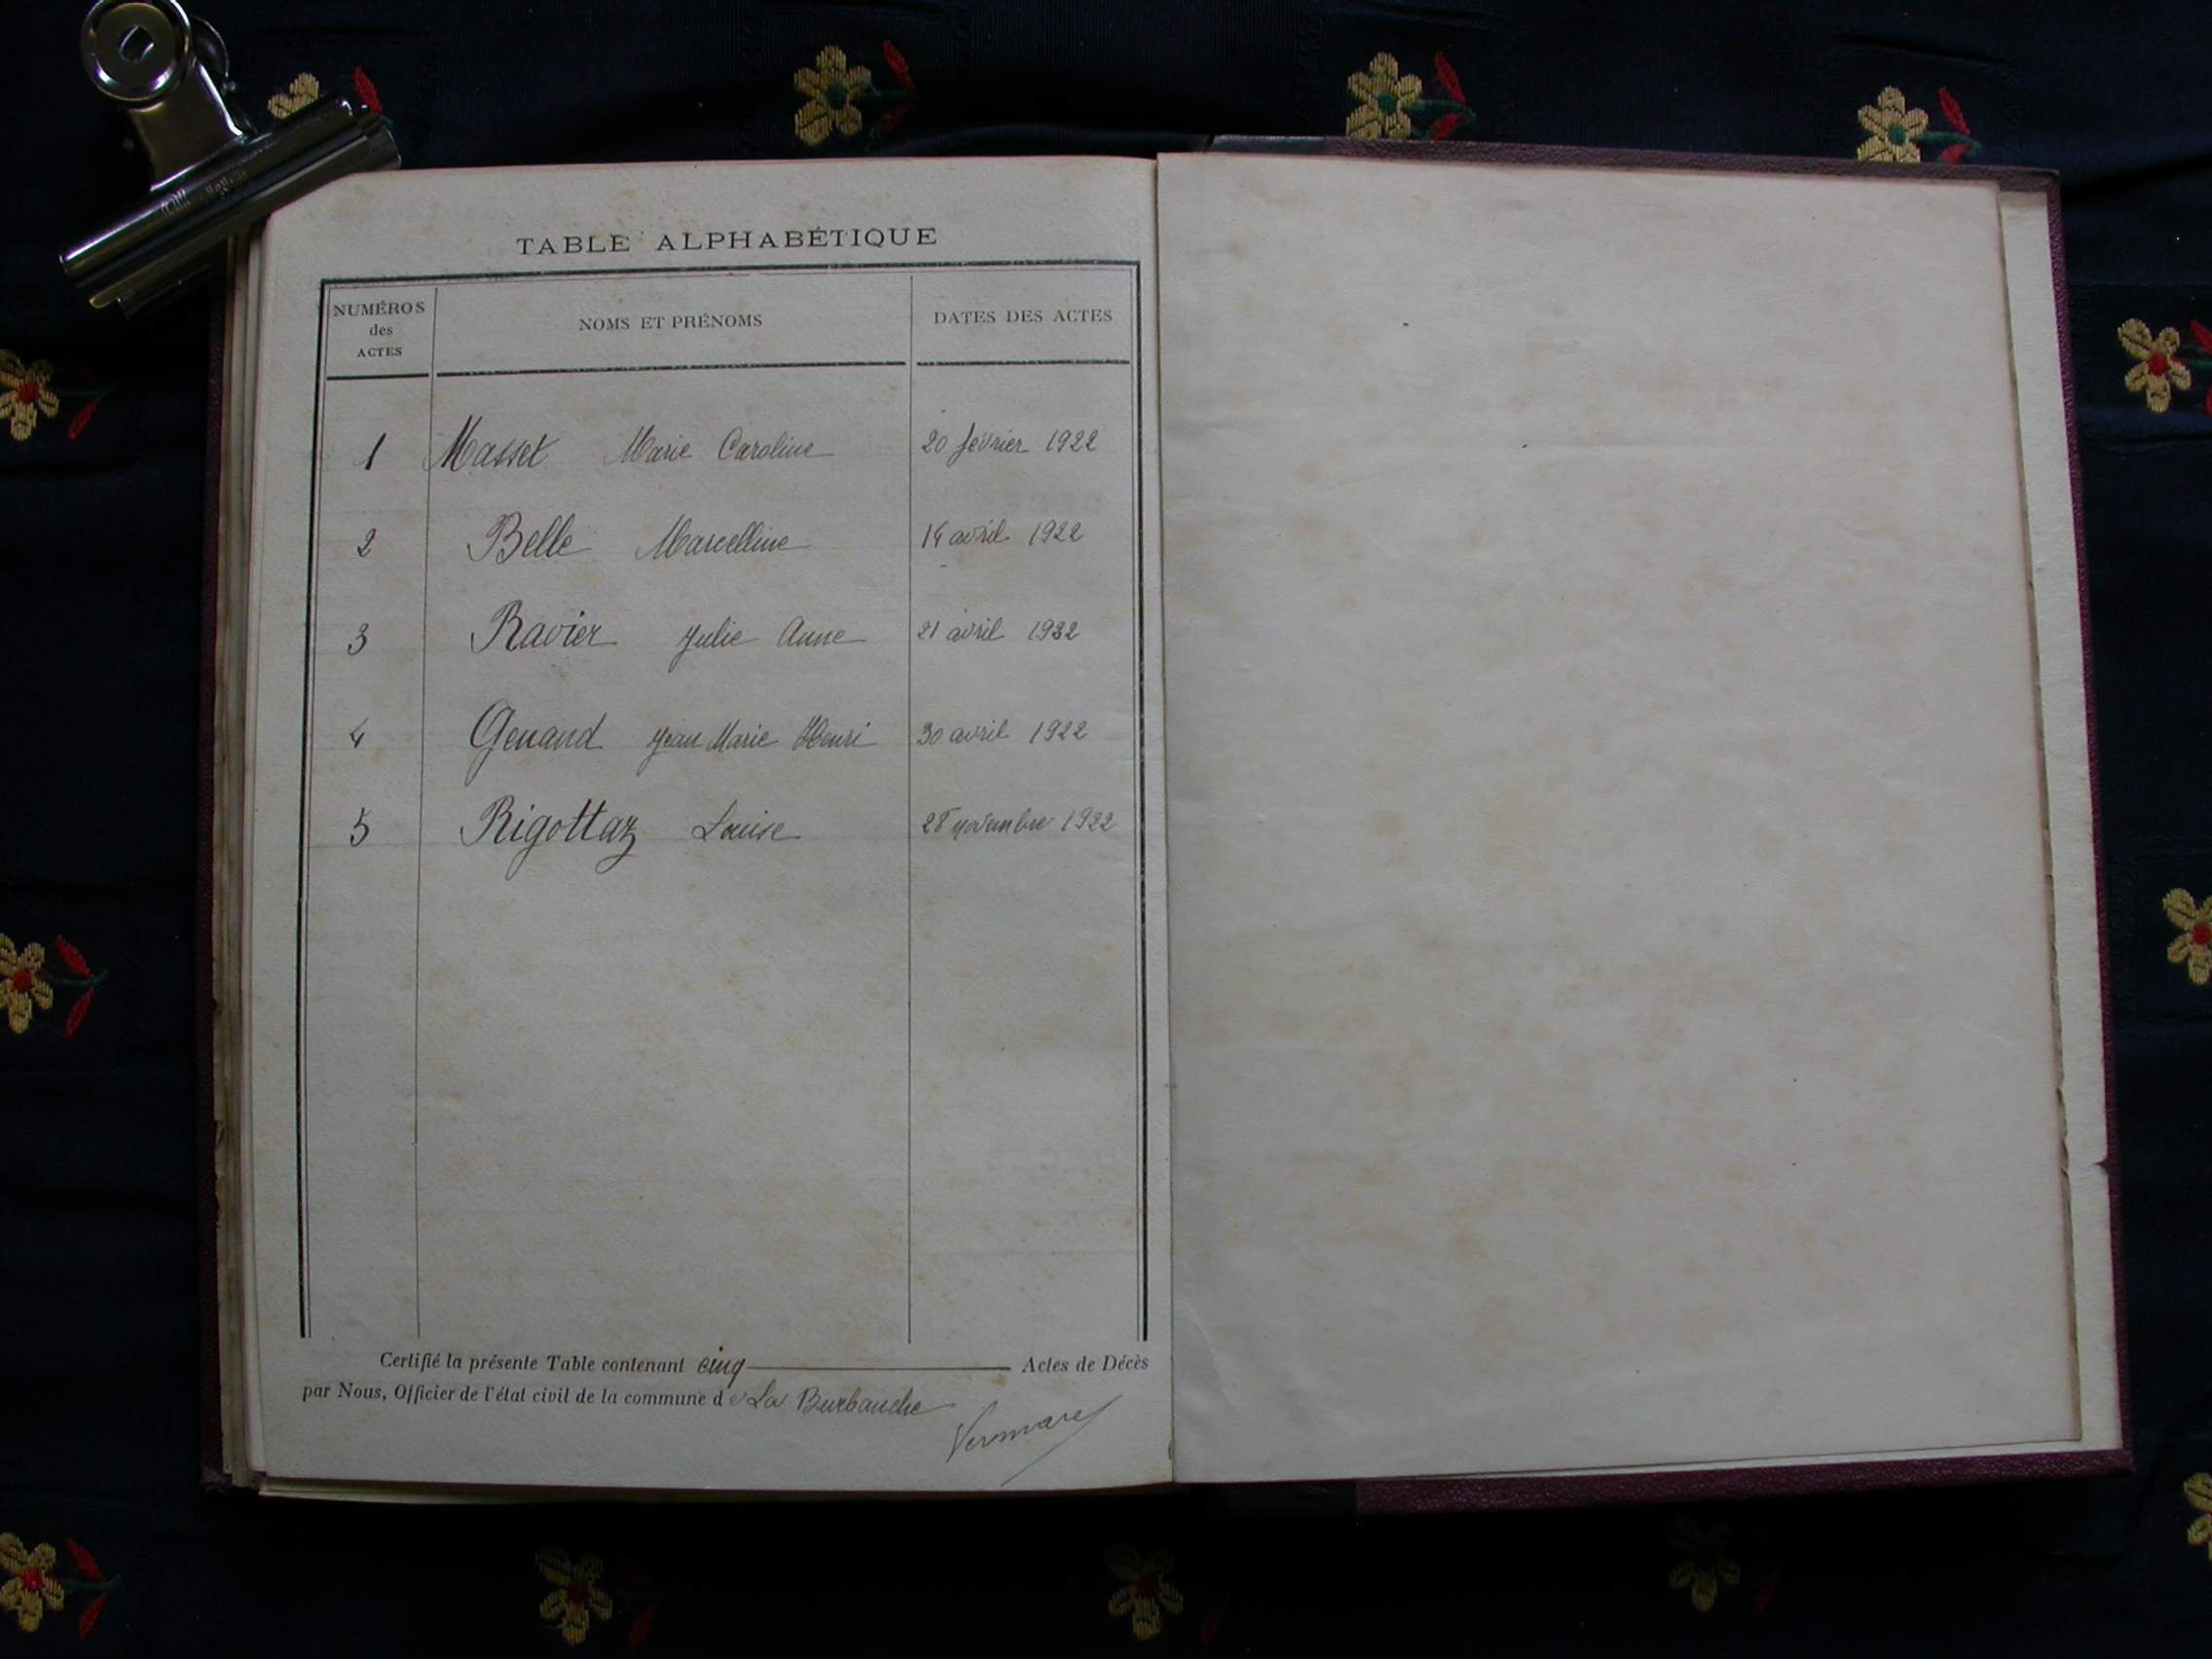 TABLE ALPHABÉTIQUE
NUMÉROS
des
ACTES
NOMS ET PRÉNOMS
DATES DES ACTES
1 Masset Marie Caroline 20 février 1922
2 Belle Marcelline 14 avril 1922
3 Ravier Julie Anne 21 avril 1922
4 Genand Jean Marie Henri 30 avril 1922
5 Rigottaz Louise 28 novembre 1922
Certifié la présente Table contenant cinq Actes de Décès
par Nous, Officier de l'état civil de la commune de La Burbanche
Vermare